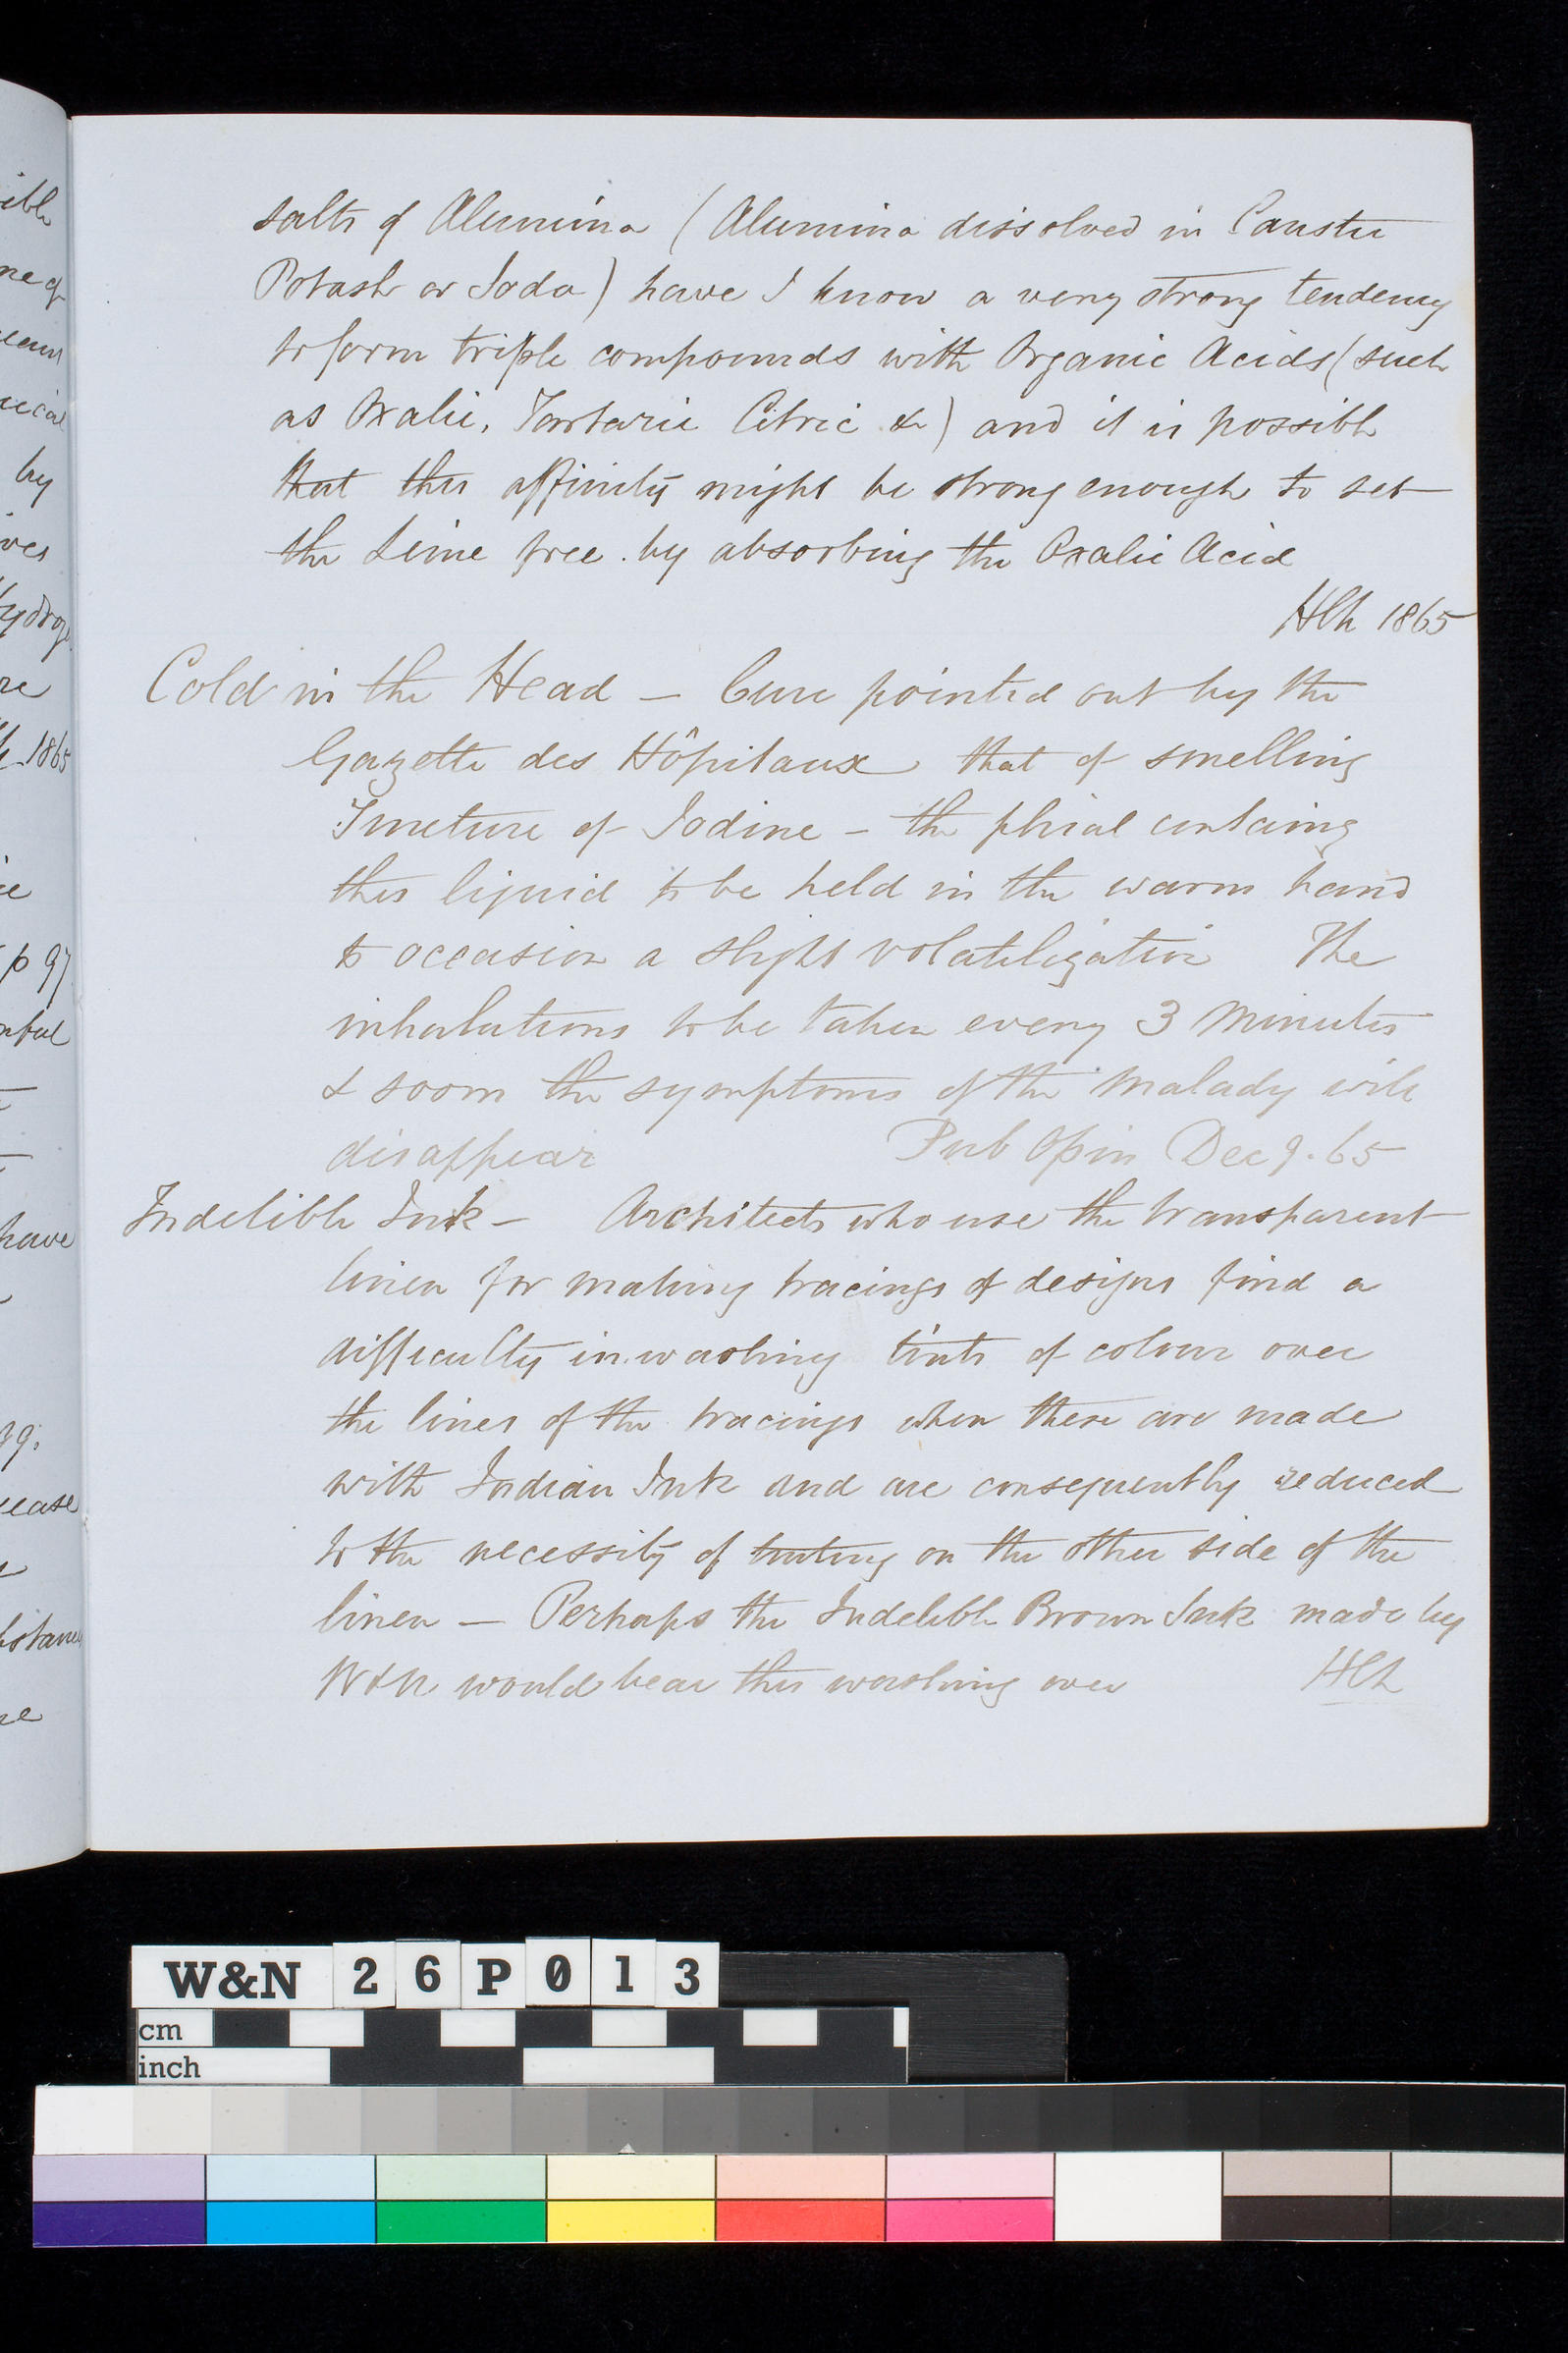 salts of Alumina (Alumina dissolved in Caustic
Potash or Soda) have I know a very strong tendency
to form triple compounds with Organic Acids (such
as Oxalic, Tartaric Citric &c) and it is possible
that this affinity might be strong enough to set
the Lime free by absorbing the Oxalic Acid
1865
Cold in the Head — Cure pointed out by the
Gazette des Hôpitaux that of smelling
Tincture of Iodine — the phial containg
this liquid to be held in the warm hand
to occasion a slight volatilization The
inhalations to be taken every 3 minutes
& soom the symptoms of the malady will
disappear Pub Opin Dec 9. 65
Indelible Ink — Architects who use the transparent
linen for making tracings of designs find a
difficulty in washing tints of colour over
the lines of the tracings when these are made
with Indian Ink and are consequently reduced
to the necessity of tinting on the other side of the
linen — Perhaps the Indelible Brown Ink made by
W&N would bear this washing over
ible
ne of
by
Hydrog
re
1865
p 97
have
99.
W&N 26P013
cm
inch